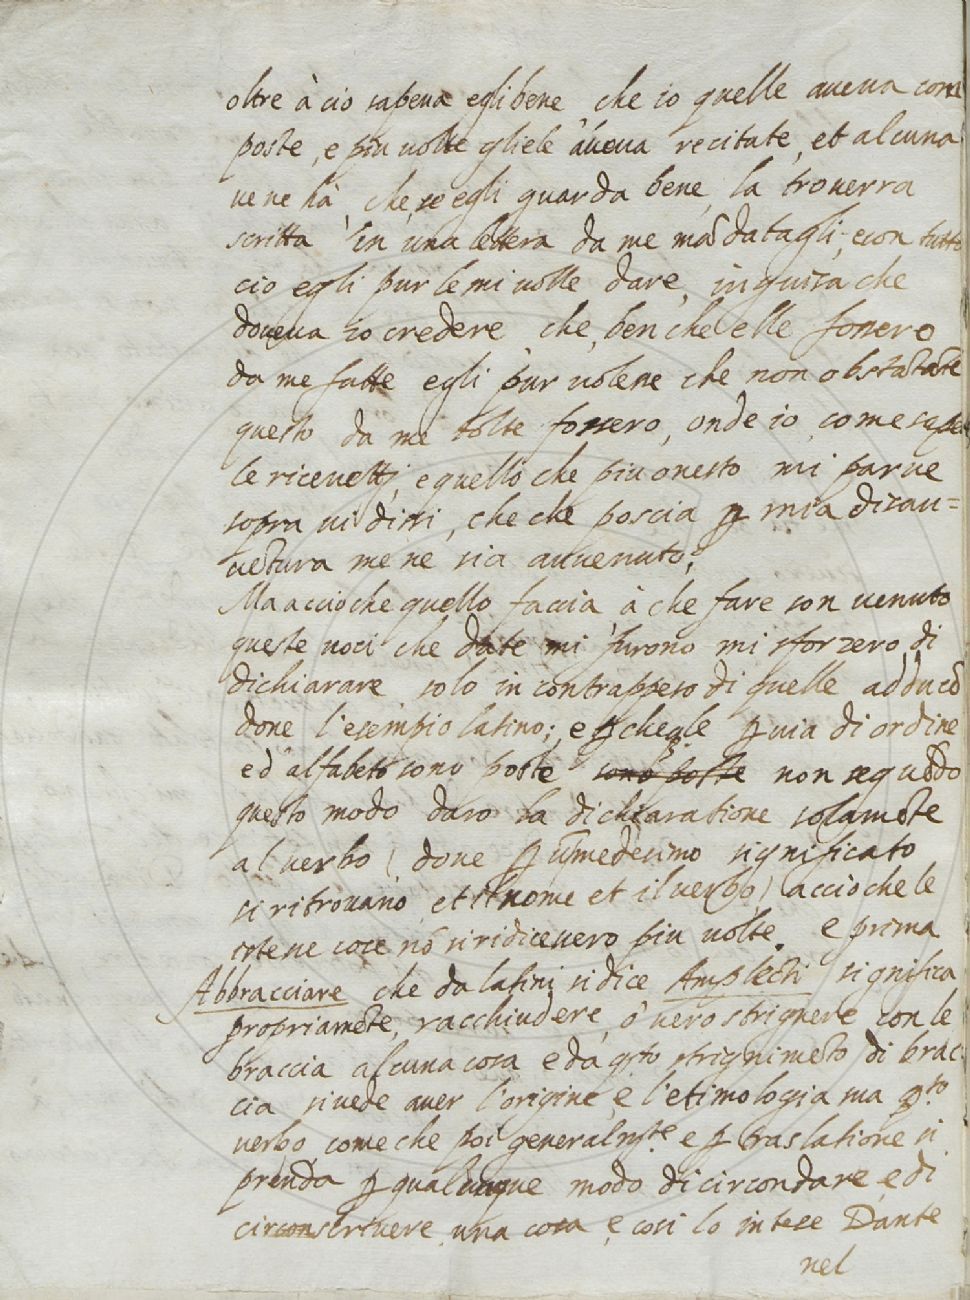 oltre à cio sapeua egli bene che io quelle aueua com
poste, e piu uolte gliele aueua recitate, et alcuna
ue ne hà, che se egli guarda bene, la trouerra
scritta in una lettera da me mādatagli, e con tutto
cio egli pur le mi uolle dare, in guisa che
doueua io credere, che, ben che elle fossero
da me fatte egli pur uolesse che non obstātāte
questo da me tolte fossero, onde io, come sapete
le riceuetti, e quello che piu onesto mi parue
sopra ui dissi, che che poscia ꝑ mia disau=
uētura me ne sia auuenuto,
Ma accioche quello faccia à che fare son uenuto
queste uoci che date mi furono mi sforzero di
dichiarare solo in contrappeso di quelle adducē
done l'esempio latino; e ꝑche gle ꝑ uia di ordine
ed alfabeto sono poste sono poste non seguēdo
questo modo daro la dichiaratione solamēte
al verbo (doue ꝑ ūmedesimo significato
si ritrouano et il nome et il uerbo) accioche le
istesse cose nō si ridicessero piu uolte. e prima
Abbracciare che da latini si dice Amplecti significa
propriamēte, racchiudere, o uero strignere con le
braccia alcuna cosa e da q̄sto strignimēto di brac=
cia si uede auer l'origine, e l'etimologia ma q̄sto
uerbo come che poi generalmte e ꝑ traslatione si
prenda ꝑ qualunque modo di circondare, e di
circonscriuere una cosa, e cosi lo intese Dante
nel